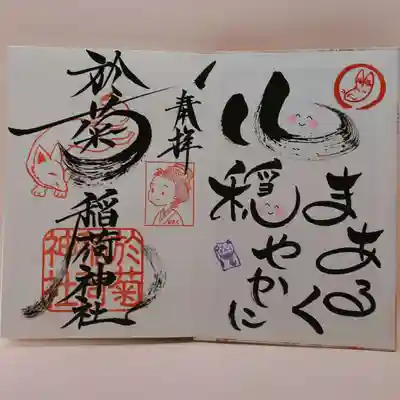 心
まあるく
穏やかに
奉拝
於菊
稲荷神社
於菊
稲荷
神社